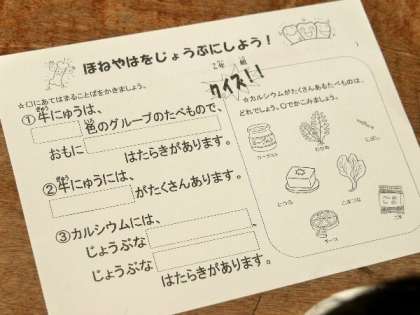 ほねやはをじょうぶにしよう！
2年 組
クイズ！！
☆□にあてはまることばをかきましょう。
①牛にゅうは、
ぎゅう
色のグループのたべもので、
いろ
おもに
はたらきがあります。
②牛にゅうには、
ぎゅう
がたくさんあります。
③カルシウムには、
じょうぶな
、
じょうぶな
はたらきがあります。
☆カルシウムがたくさんあるたべものは、
どれでしょう。○でかこみましょう。
ヨーグルト
わかめ
にぼし
とうふ
こまつな
チーズ